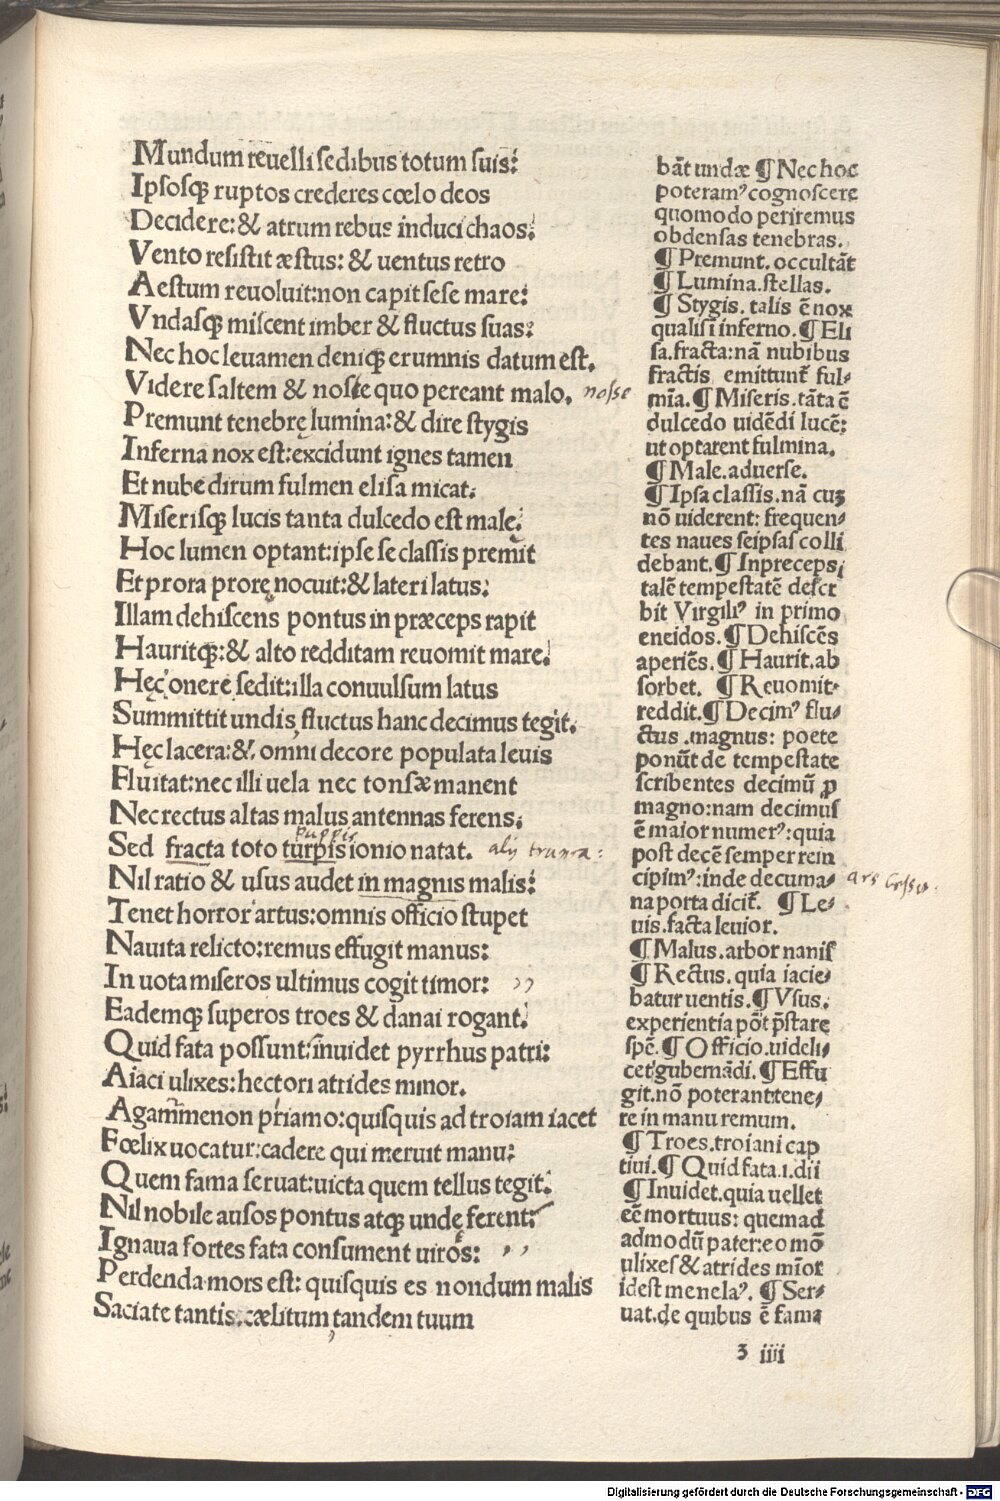 Mundum reuelli sedibus totum suis:
Ipsosqꝫ ruptos crederes cœlo deos
Decidere: & atrum rebus induci chaos:
Vento resistit æstus: & uentus retro
Aestum reuoluit: non capit sese mare:
Vndasqꝫ miscent imber & fluctus suas:
Nec hoc leuamen deniqꝫ erumnis datum est.
Videre saltem & noste quo pereant malo. nosse
Premunt tenebrę lumina: & dire stygis
Inferna nox est: excidunt ignes tamen
Et nube dirum fulmen elisa micat:
Miserisqꝫ lucis tanta dulcedo est male:
Hoc lumen optant: ipse se classis premit
Et prora prorę nocuit: & lateri latus:
Illam dehiscens pontus in præceps rapit
Hauritqꝫ: & alto redditam reuomit mare:
Hęc onere sedit: illa conuulsum latus
Summittit undis, fluctus hanc decimus tegit.
Hęc lacera: & omni decore populata leuis
Fluitat: nec illi uela nec tonsæ manent
Nec rectus altas malus antennas ferens:
puppis
Sed fracta toto turpis ionio natat. alij trunca:
Nil ratio & usus audet in magnis malis:
Tenet horror artus: omnis officio stupet
Nauita relicto: remus effugit manus:
In uota miseros ultimus cogit timor: ,,
Eademqꝫ superos troes & danai rogant:
Quid fata possunt: inuidet pyrrhus patri:
Aiaci ulixes: hectori atrides minor.
Agammenon priamo: quisquis ad troiam iacet
Fœlix uocatur: cadere qui meruit manu:
Quem fama seruat: uicta quem tellus tegit:
Nil nobile ausos pontus atqꝫ undę ferent:
Ignaua fortes fata consument uiros: ,,
Perdenda mors est: quisquis es nondum malis
Saciate tantis: cælitum tandem tuum
bãt undæ ¶ Nec hoc
poteramꝰ cognoscere
quomodo periremus
ob densas tenebras.
¶ Premunt. occultãt
¶ Lumina. stellas.
¶ Stygis. talis ẽ nox
qualis ĩ inferno. ¶ Eli
sa. fracta: nã nubibus
fractis emittunt̃ ful-
mĩa. ¶ Miseris. tãta ẽ
dulcedo uidẽdi lucẽ:
ut optarent fulmina.
¶ Male. aduerse.
¶ Ipsa classis. nã cuꝫ
nõ uiderent: frequen-
tes naues seipsas colli
debant. ¶ Inpreceps:
talẽ tempestatẽ descr
bit Virgiliꝰ in primo
eneidos. ¶ Dehiscẽs
aperiẽs. ¶ Haurit. ab
sorbet. ¶ Reuomit.
reddit. ¶ Decimꝰ flu-
ctus .magnus: poete
ponũt de tempestate
scribentes decimũ ꝓ
magno: nam decimus
ẽ maior numerꝰ: quia
post decẽ semper rein
cipimꝰ: inde decuma- 
na porta dicit̃. ¶ Le-
uis. facta leuior.
¶ Malus. arbor nanis
¶ Rectus. quia iacie-
batur uentis. ¶ Vsus.
experientia põt p̃stare
spẽ. ¶ Officio. uideli-
cet gubernãdi. ¶ Effu
git. nõ poterant tene-
re in manu remum.
¶ Troes. troiani cap
tiui. ¶ Quid fata. i. dii
¶ Inuidet. quia uellet
eẽ mortuus: quemad
admodũ pater: eo mõ
ulixes & atrides mĩor
idest menelaꝰ. ¶ Ser-
uat. de quibus ẽ fama
3 iiii
Digitalisierung gefördert durch die Deutsche Forschungsgemeinschaft - DFG